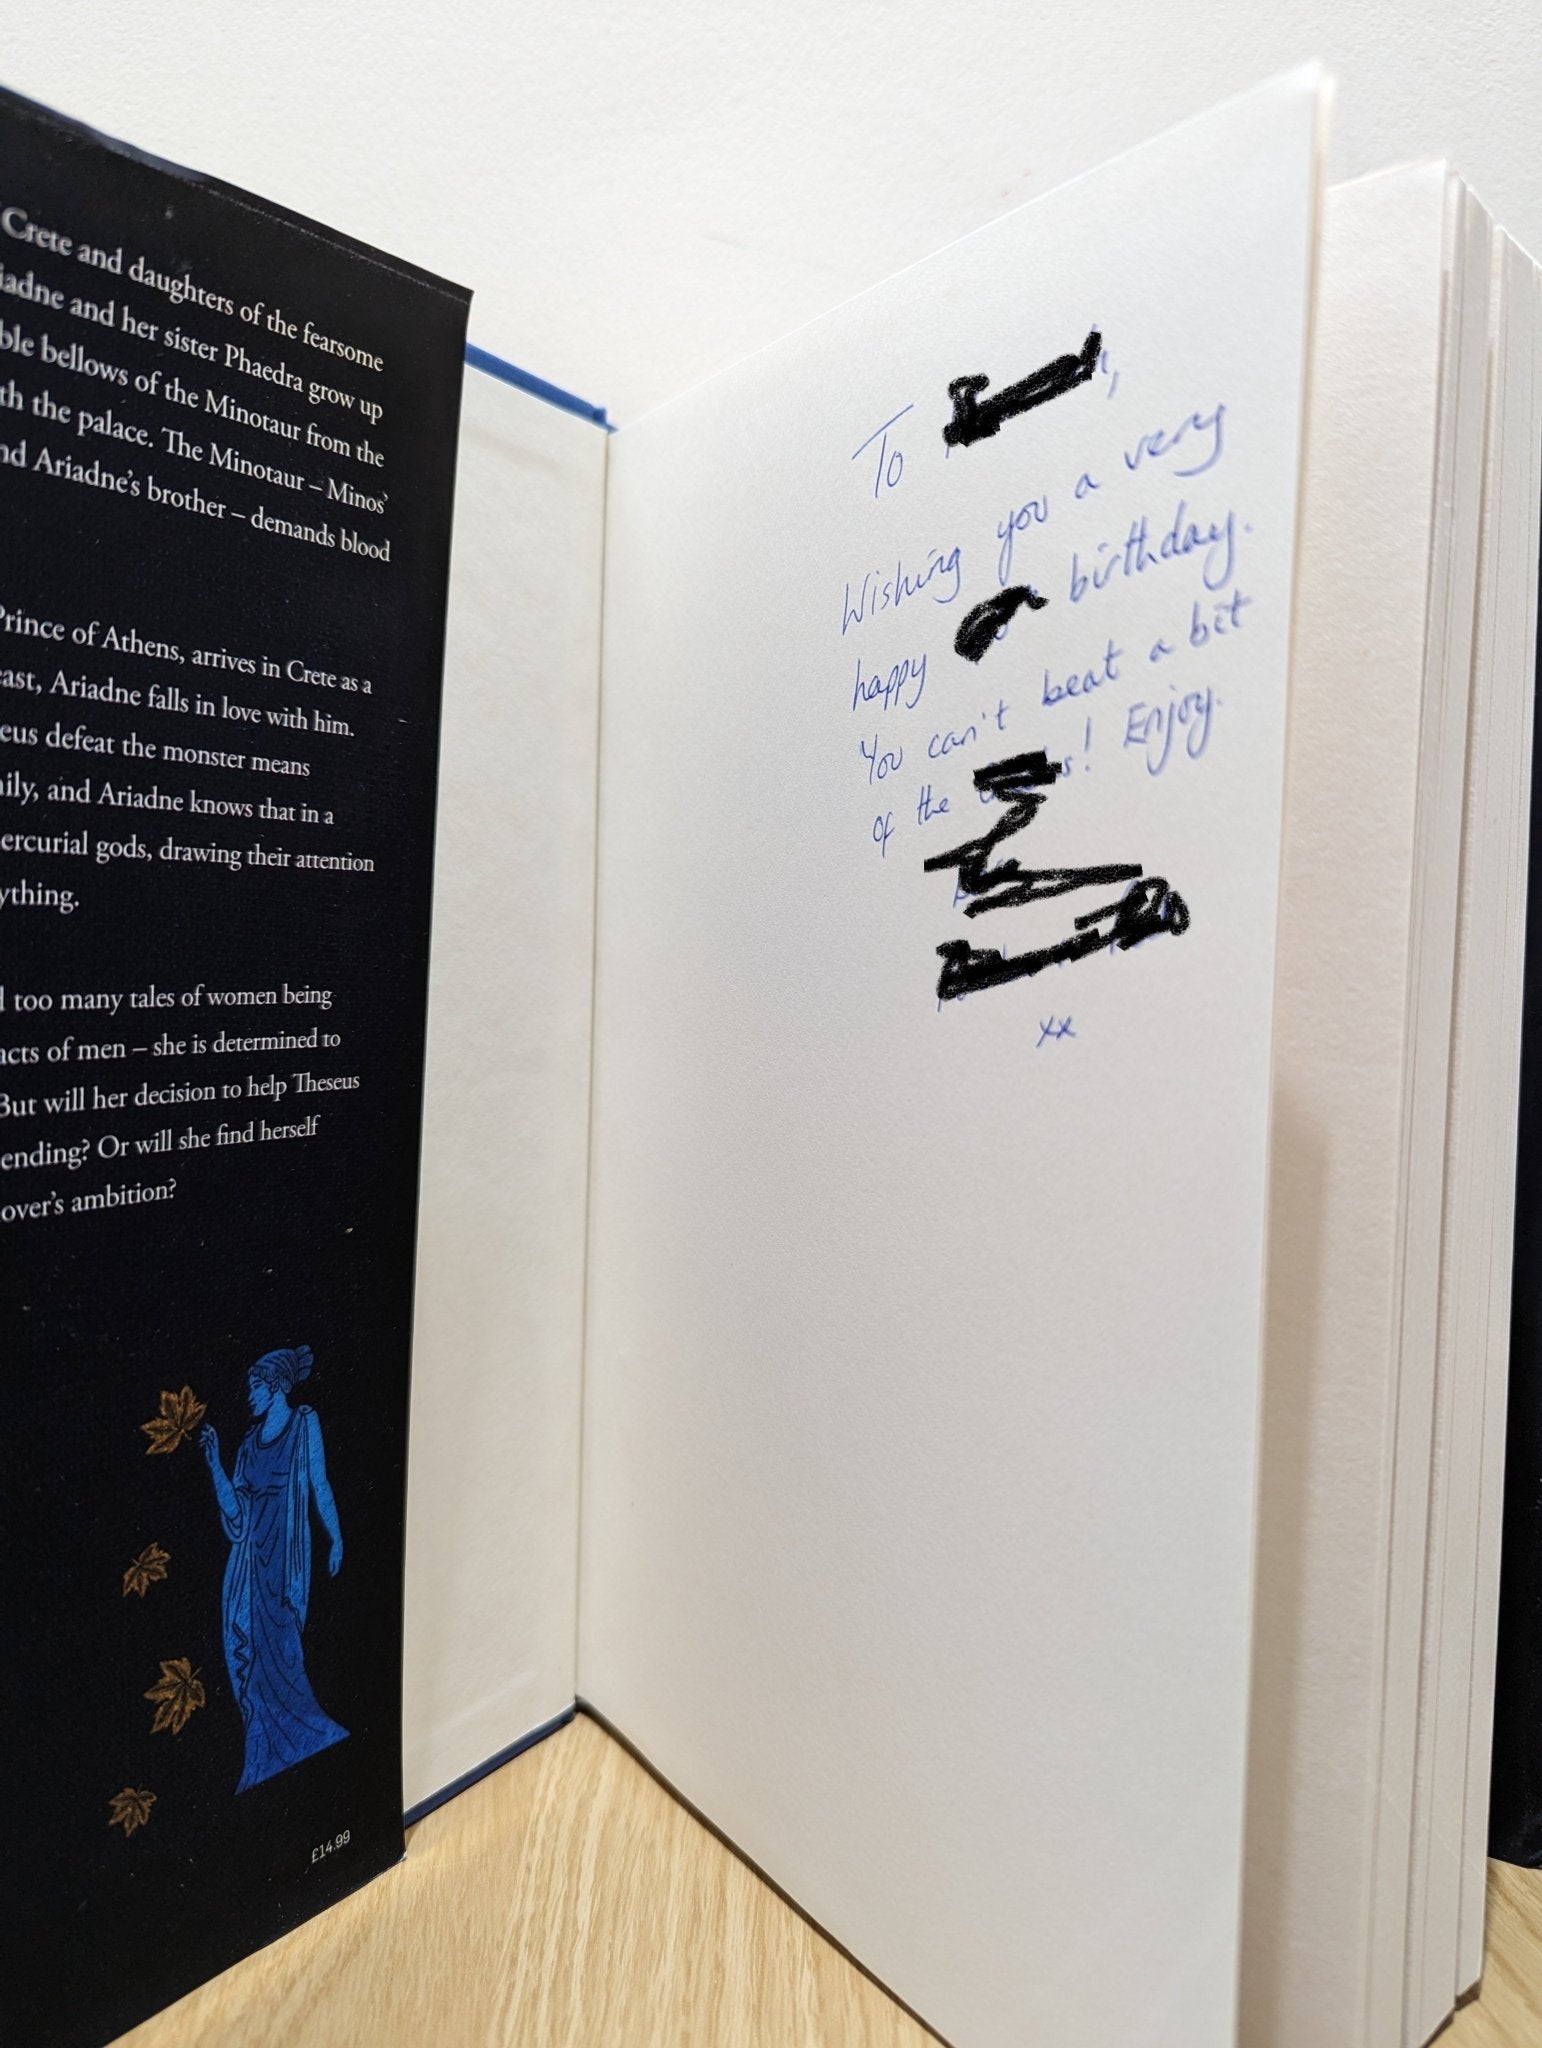 Crete and daughters of the fearsome
and her sister Phaedra grow up
bellows of the Minotaur from the
the palace. The Minotaur – Minos’
Ariadne’s brother – demands blood
Prince of Athens, arrives in Crete as a
Ariadne falls in love with him.
defeat the monster means
and Ariadne knows that in a
gods, drawing their attention
too many tales of women being
acts of men – she is determined to
But will her decision to help Theseus
ending? Or will she find herself
ambition?
£14.99
To
Wishing you a very
happy birthday.
You can't beat a bit
of the ! Enjoy.
xx